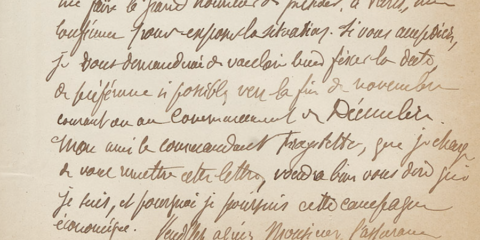 me faire le grand honneur de présider, à Paris, une
conférence pour exposer la situation. Si vous acceptiez,
je vous demanderai de vouloir bien fixer la date,
de préférence si possible, vers la fin de novembre
courant ou au commencement de Décembre.
Mon ami le commandant que je charge
de vous remettre cette lettre, voudra bien vous dire qui
je suis, et pourquoi je poursuis cette campagne
économique.
Veuillez agréer Monsieur l'assurance